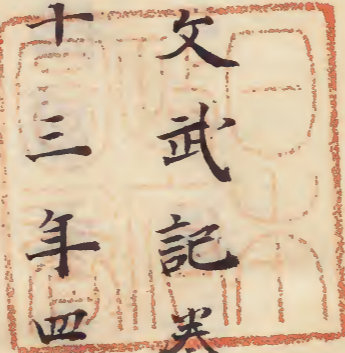 文武記巻
十三年四